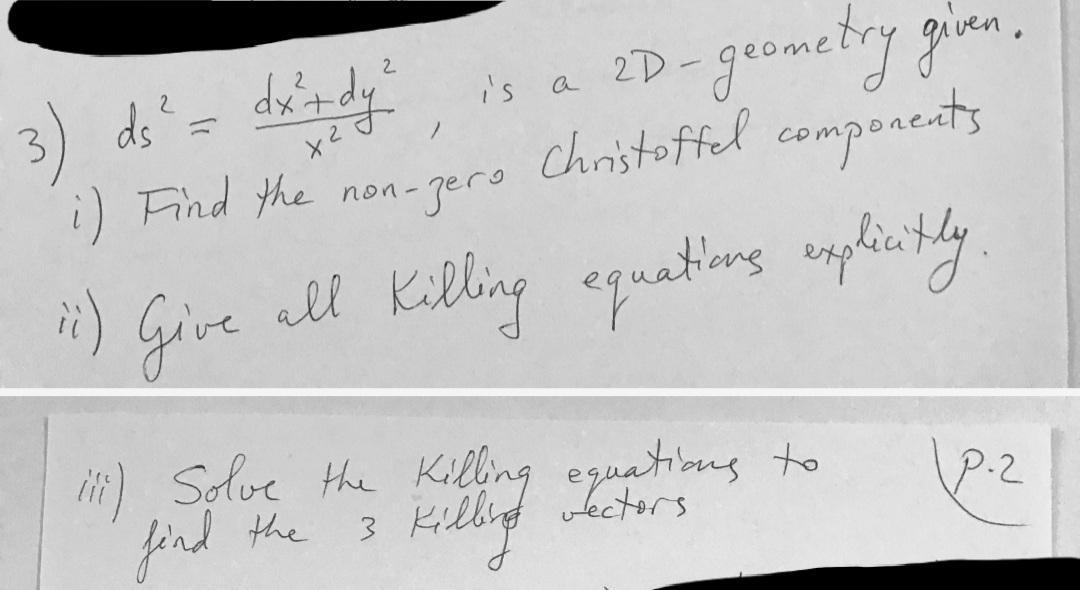 3) ds² = dx²+dy² / x² , is a 2D-geometry given.
i) Find the non-zero Christoffel components
ii) Give all Killing equations explicitly.
iii) Solve the Killing equations to
find the 3 Killing vectors
p.2